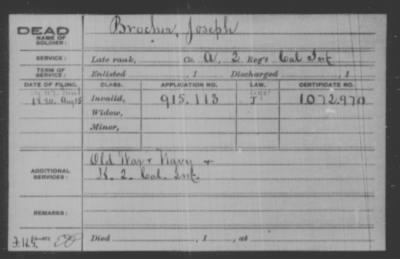 DEAD
NAME OF SOLDIER:
Brocher, Joseph
SERVICE:
Late rank, Co. A, 2 Reg't Cal Inf
TERM OF SERVICE:
Enlisted , 1 Discharged , 1
DATE OF FILING. CLASS. APPLICATION NO. LAW. CERTIFICATE NO.
1890 Aug 15 Invalid, 915.113 J 1.072.970
Widow,
Minor,
ADDITIONAL SERVICES:
Old War & Navy &
K. 2. Cal. Inf.
REMARKS:
Died , 1 , at